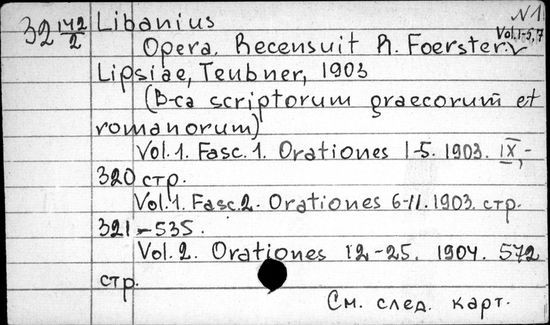 N 1
Vol. 1-5, 7
32 142/2 Libanius
Opera. Recensuit R. Foerster. V
Lipsiae, Teubner, 1903
(B-ca scriptorum graecorum et
romanorum)
Vol. 1. Fasc. 1. Orationes 1-5. 1903. IX,-
320 стр.
Vol. 1. Fasc. 2. Orationes 6-11. 1903. стр.
321-535.
Vol. 2. Orationes 12-25. 1904. 572
стр.
См. след. карт.